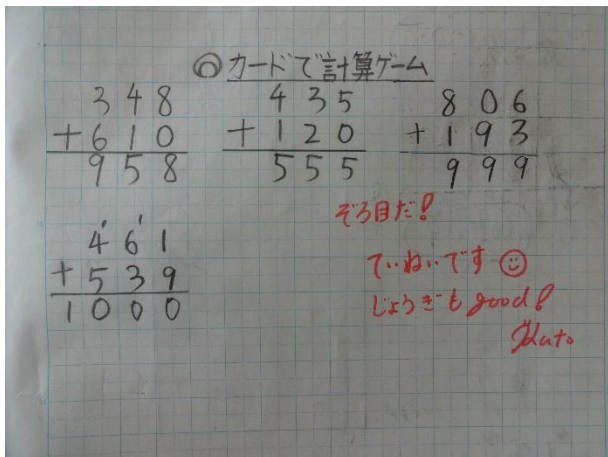 ◎カードで計算ゲーム
348
+610
958
435
+120
555
806
+193
999
ぞろ目だ!
461
+539
1000
ていねいです☺
じょうぎもgood!
Kato